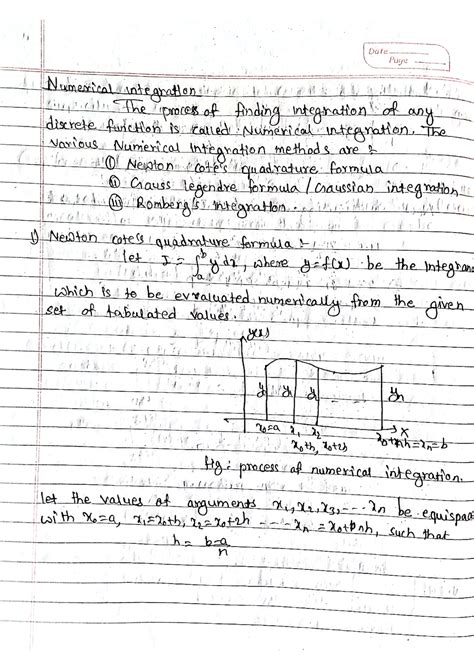 Date
Page
Numerical integration :
The process of finding integration of any
discrete function is called Numerical integration. The
various Numerical Integration methods are :
(i) Newton cote's quadrature formula
(ii) Gauss legendre formula / Gaussian integration
(iii) Romberg's integration.
1) Newton cote's quadrature formula :
let I = ∫ₐᵇ y dx, where y=f(x) be the Integran
which is to be evraluated numerically from the given
set of tabulated values.
y(x)
x₀=a x₁ x₂ x₀+nh=xₙ=b
x
x₀+h, x₀+2h
yₙ
fig: process of numerical integration.
let the values of arguments x₁,x₂,x₃,---xₙ be equispac
with x₀=a, x₁=x₀+h, x₂=x₀+2h ---xₙ=x₀+nh, such that
h = b-a/n